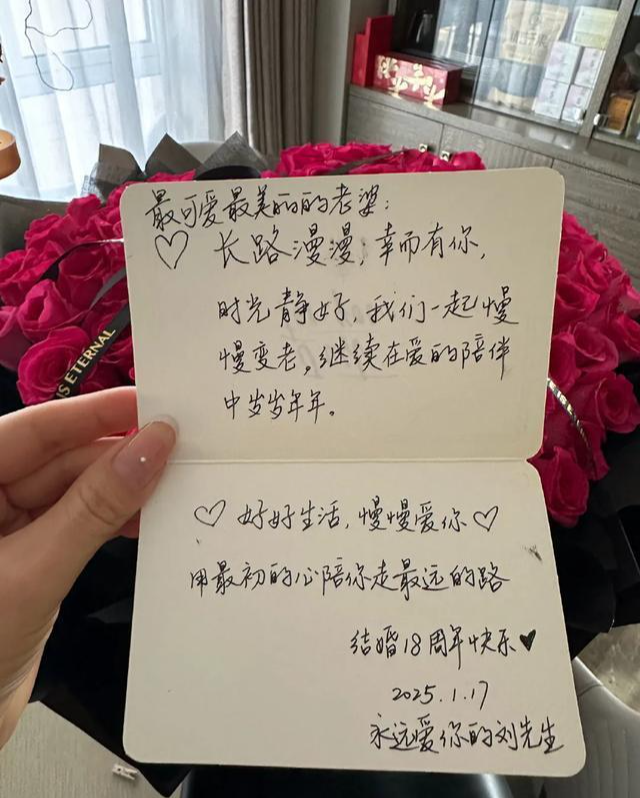 最可爱最美丽的老婆:
♡ 长路漫漫,幸而有你,
时光静好,我们一起慢
慢变老,继续在爱的陪伴
中岁岁年年。
♡ 好好生活,慢慢爱你♡
用最初的心陪你走最远的路
结婚18周年快乐♥
2025.1.17
永远爱你的刘先生
IS ETERNAL